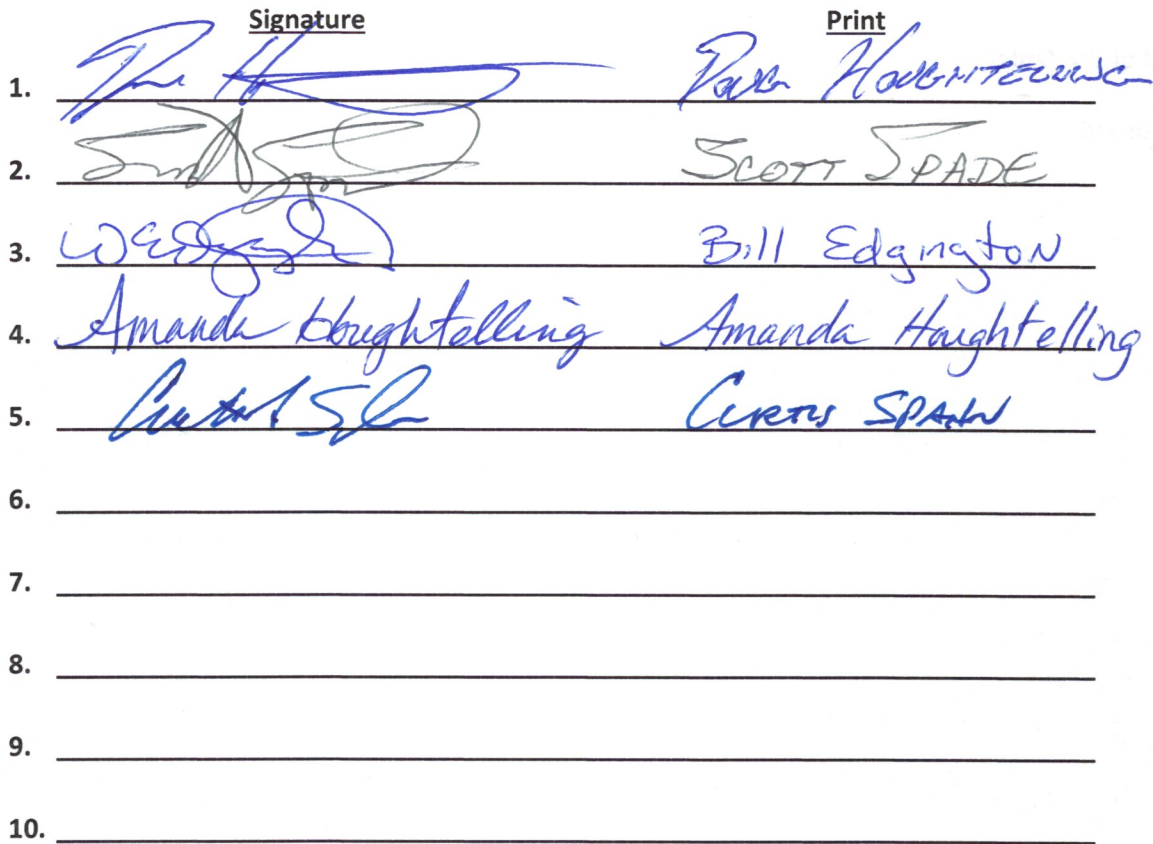 Signature Print
1. HOUGHTELLING
2. SCOTT SPADE
3. Bill Edgington
4. Amanda Houghtelling Amanda Houghtelling
5. CURTIS SPANN
6.
7.
8.
9.
10.